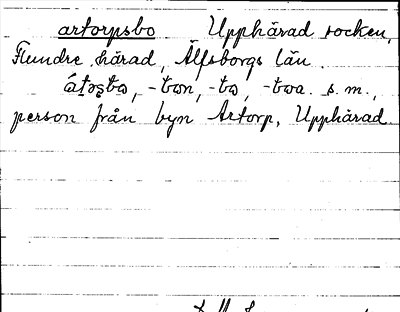 artorpsbo Upphärad socken,
Flundre härad, Älfsborgs län.
-bωn, -bω, -bωa. s. m.,
person från byn Artorp, Upphärad